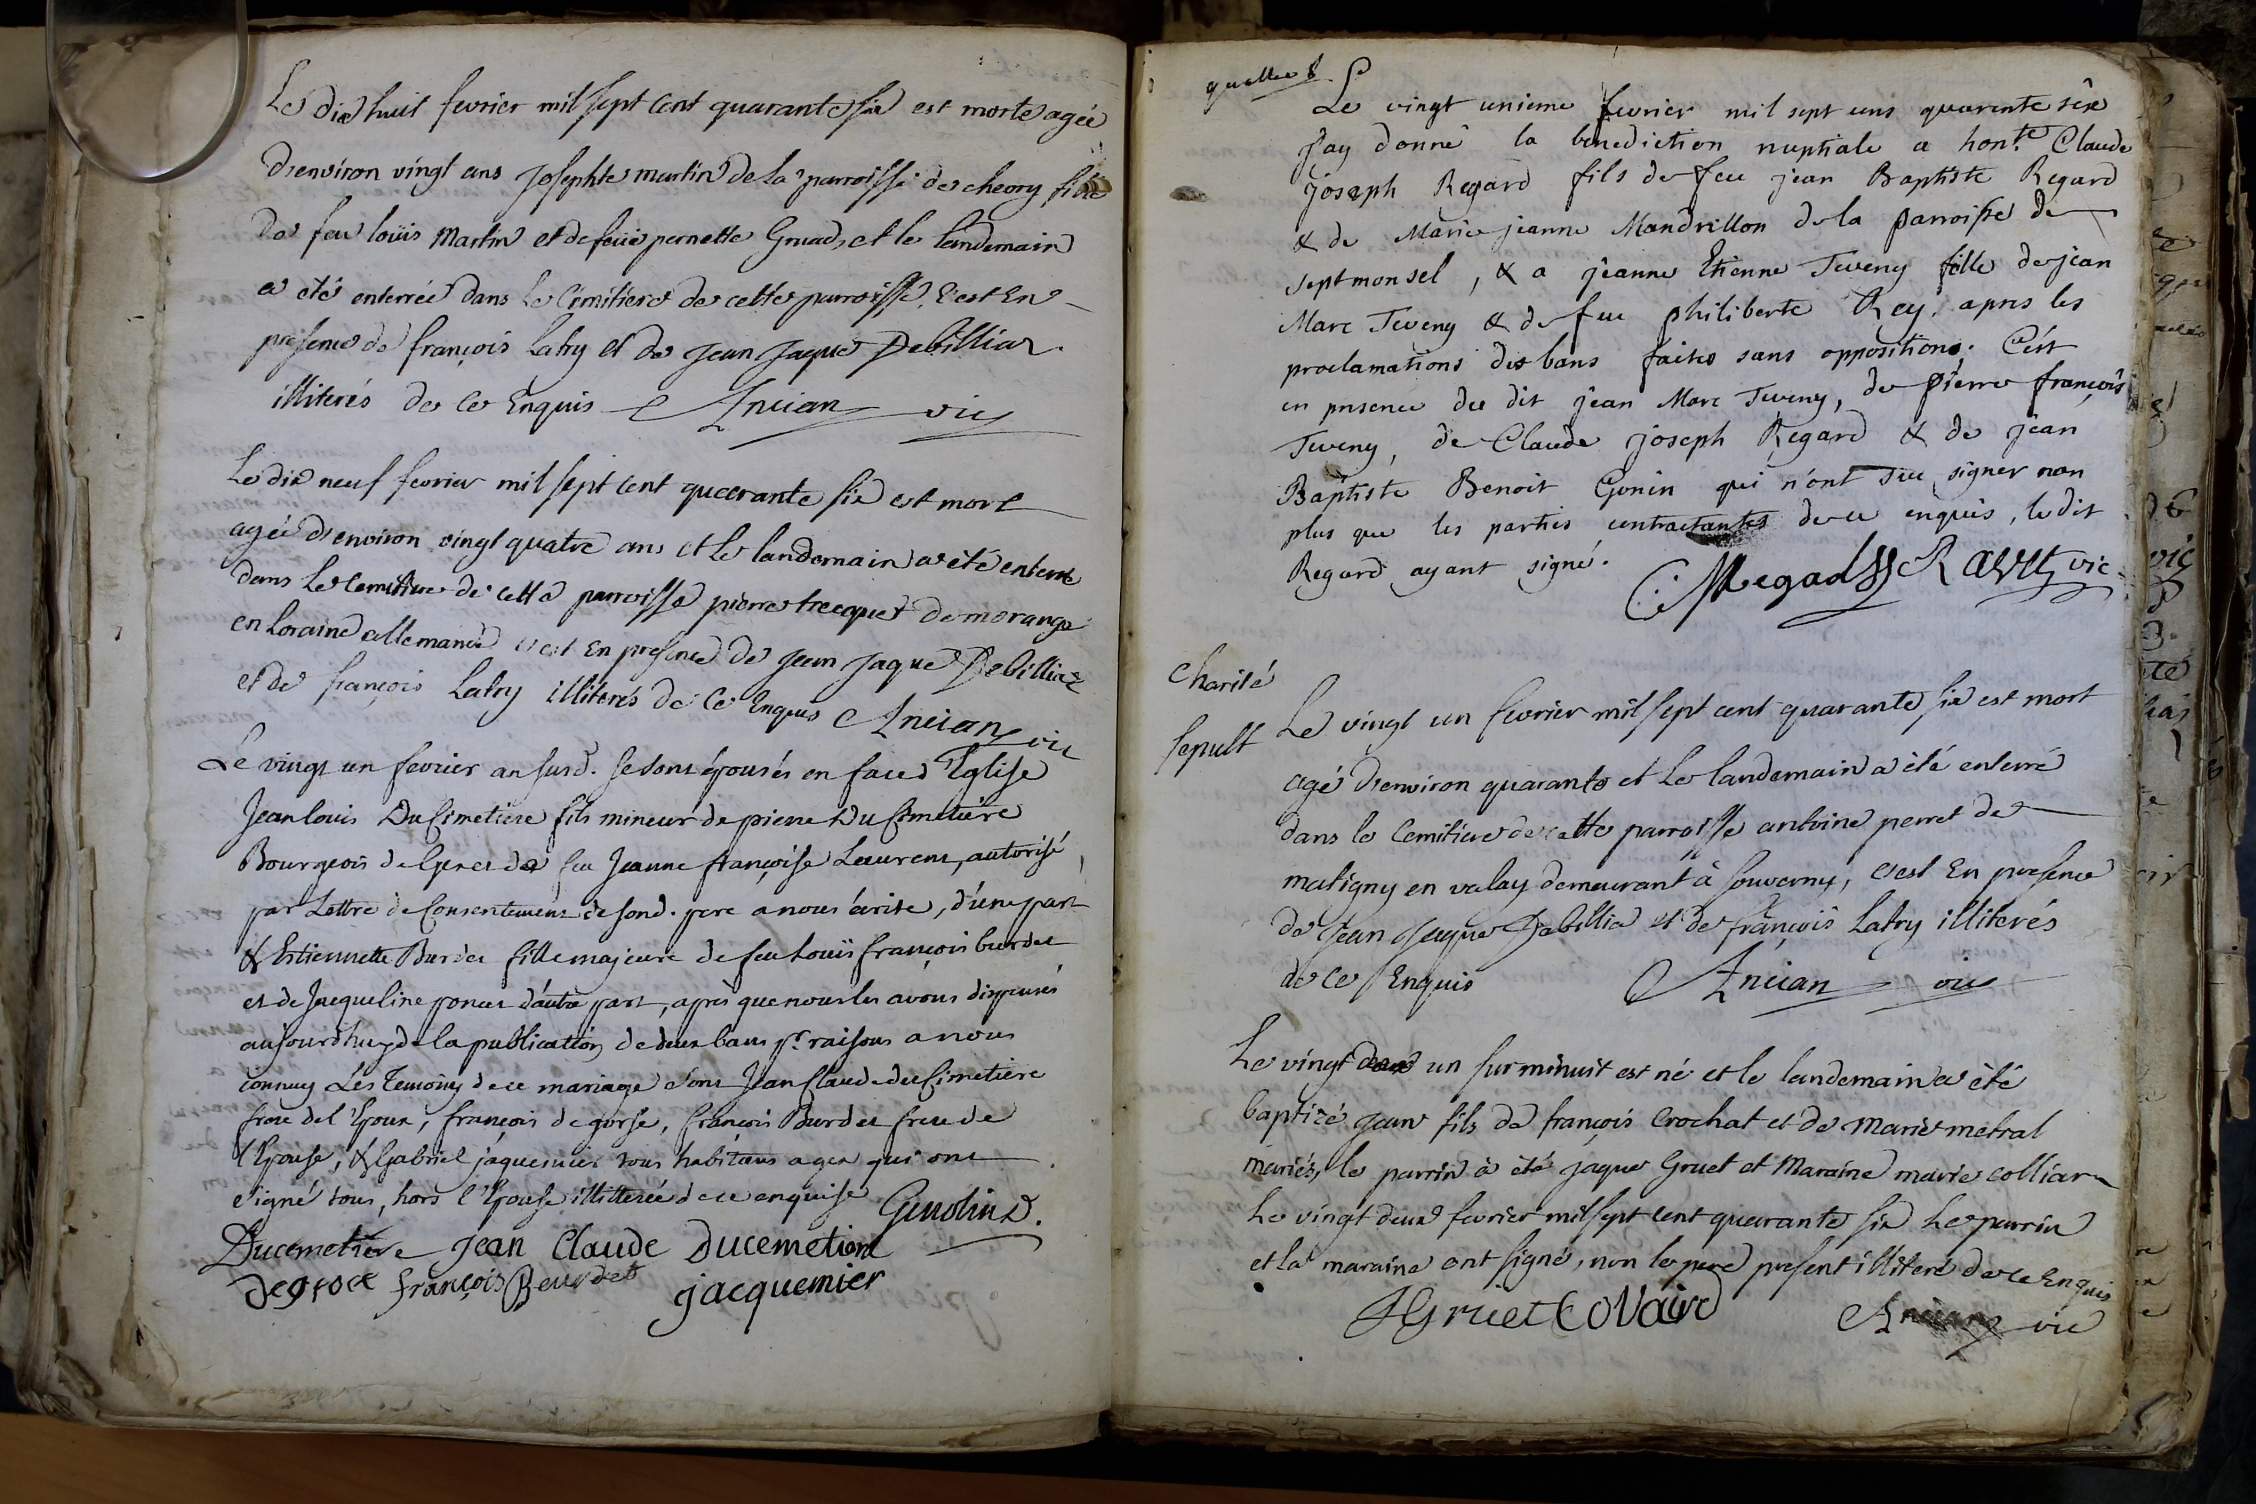 Le dix huit fevrier mil sept cent quarante six est morte agée
d'environ vingt ans josephte martin de la parroisse de cheory fille
de feu loüis Martin et de feüe pernette Gruad, et le landemain
a été enterrée dans le Cimitiere de cette parroisse, c'est En
presence de françois Latry et de Jean Jaque Debilliaz
illiterés de Ce Enquis Ancian vic
Le dix neuf fevrier mil sept cent quarante six est mort
agée d'environ vingt quatre ans et le landemain a été enterré
dans le Cemitiere de cette parroisse pierre trecquet de morange
en loraine allemande c'est En presence de Jean Jaque Debilliaz
et de françois Latry illiterés de Ce Enquis Ancian vic
Le vingt un fevrier an susd. se sont épousés en face d'Eglise
Jean louis Du Cimetiere fils mineur de pierre Du Cimetiére
Bourgeois de Gex et de feu Jeanne françoise Laurent, autorisé
par Lettre de Consentement de son d. pere a nous écrite, d'une part
& Estiennette Burdet fille majeure de feu Louis françois burdet
et de Jacqueline poncet d'autre part, aprés que nous les avons dispensés
aujourdhuy de la publication de deux bans pr. raisons a nous
connuës Les Temoins de ce mariage sont Jean Claude du Cimetiére
frere de l'Epoux, françois de gorse, françois Burdet frere de
l'Epouse, & Gabriel jaquemier tous habitans a gex qui ont
signé tous, hors l'Epouse illiterée de ce enquise Genolin d.
Ducemetiére Jean Claude Ducemetiere
degroce françois Beurdet jacquemier
Le vingt unieme fevrier mil sept cens quarente six
J'ay donné la benediction nuptiale a hon.te Claude
joseph Regard fils de feu jean Baptiste Regard
& de Marie jeanne Mandrillon de la parroisse de
septmonsel, & a jeanne Etienne Teveny fille de jean
Marc Teveny & de feu philiberte Rey, apres les
proclamations des bans faites sans oppositions. C'est
en presence du dit jean Marc Teveny, de pierre françois
Teveny, de Claude joseph Regard & de jean
Baptiste Benoit Gonin qui n'ont sçu signer non
plus que les parties contractantes de ce enquis, le dit
Regard ayant signé. C. J. Regad Ravet vic
Charité
sepult
Le vingt un fevrier mil sept cent quarante six est mort
agé d'environ quarante et le landemain a été enterré
dans le Cemitiere de cette parroisse antoine perret de
matigny en valay demeurant à souverny, c'est En presence
de Jean Jaque Debillia et de françois Latry illiterés
de Ce Enquis Ancian vic
Le vingt un sur minuit est né et le landemain a été
baptizé Jean fils de françois Crochat et de Marie metral
mariés, le parrin a été jaque Gruet et Maraine marie colliar
Le vingt deux fevrier mil sept cent quarante six Le parrin
et la maraine ont signé, non le pere present illiteré de ce Enquis
J Gruet Ancian vic